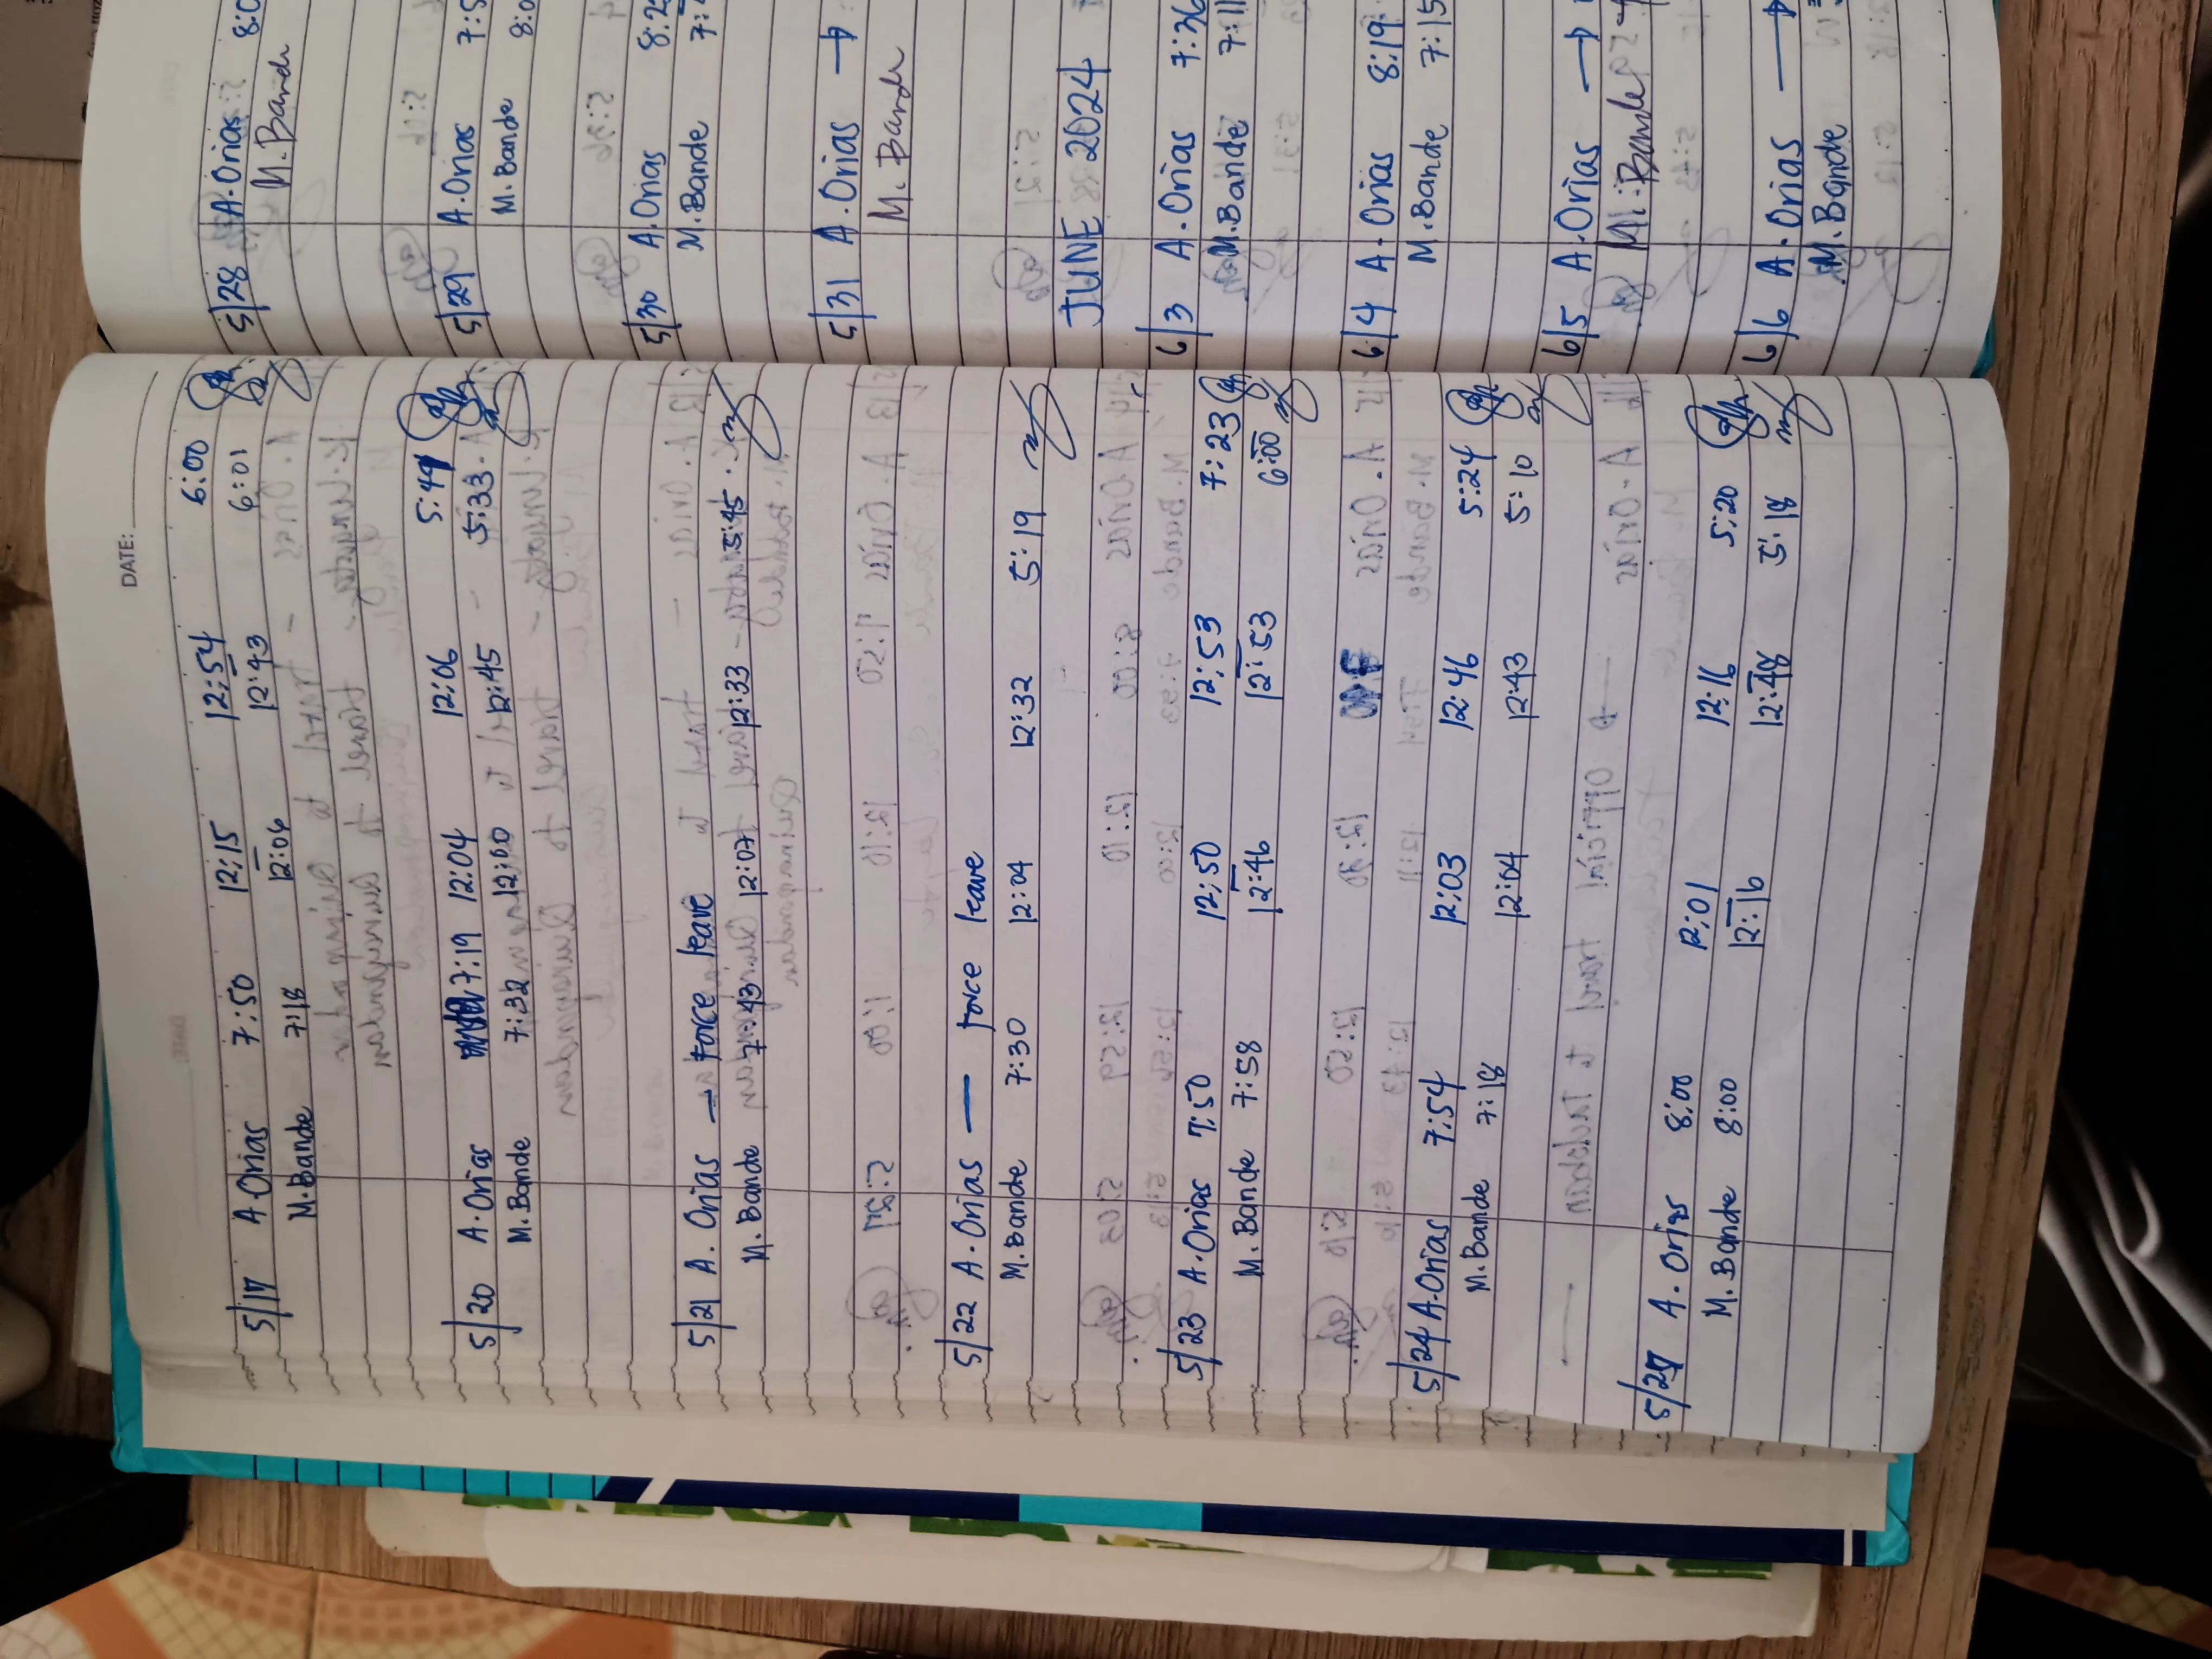 DATE:
6:00
5/17 A. Orias 7:50 12:15 12:54 6:01
M. Bande 7:18 12:04 12:43
5/20 A. Orias 7:19 12:04 12:06
M. Bande 7:32 12:00 12:45 5:33
5/21 A. Orias → force leave
M. Bande 7:43 12:07 12:33 5:45
5/22 A. Orias — force leave
M. Bande 7:30 12:04 12:32 5:19
5/23 A. Orias 7:50 12:50 12:53 7:23
M. Bande 7:58 12:46 12:53 6:00
5/24 A. Orias 7:54 12:03 12:46 5:24
M. Bande 7:18 12:04 12:43 5:10
5/27 A. Orias 8:00 12:01 12:16 5:20
M. Bande 8:00 12:16 12:48 5:18
5/28 A. Orias 8:0
M. Bande
5/29 A. Orias 7:5
M. Bande 8:0
5/30 A. Orias 8:2
M. Bande 7:
5/31 A. Orias →
M. Bande
JUNE 2024
6/3 A. Orias 7:36
M. Bande 7:11
6/4 A. Orias 8:19
M. Bande 7:15
6/5 A. Orias →
M. Bande
6/6 A. Orias →
M. Bande